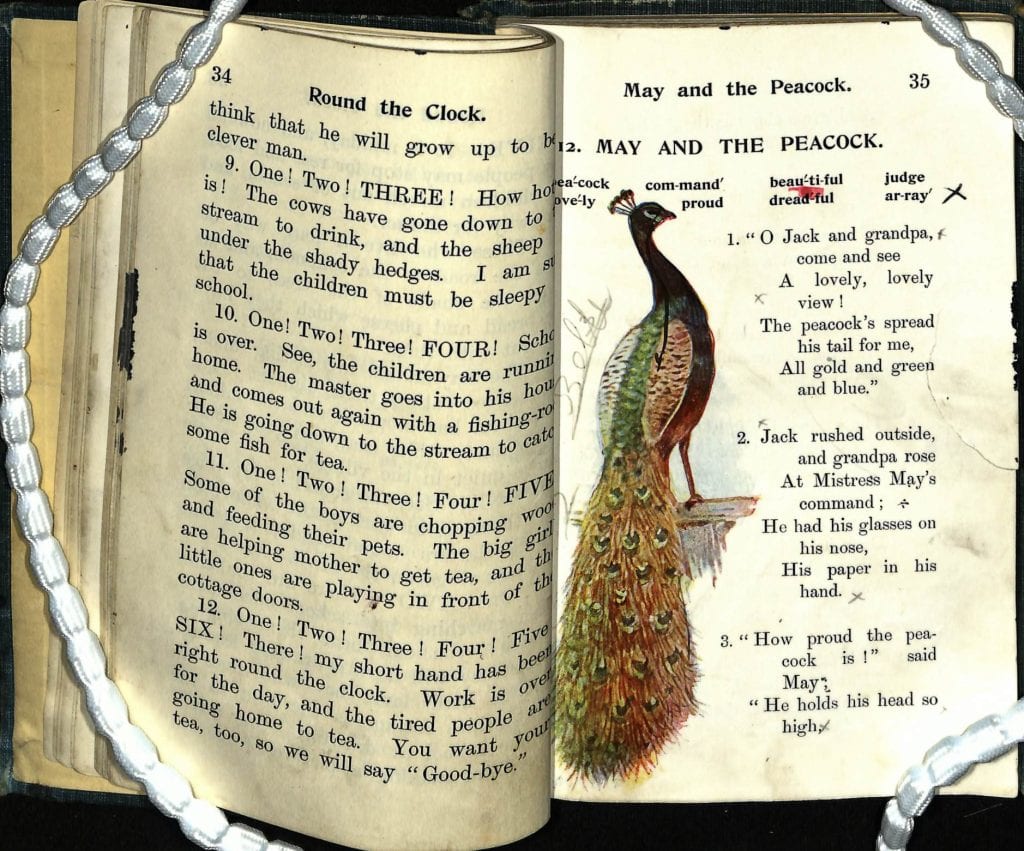 34
Round the Clock.
think that he will grow up to be
clever man.
9. One! Two! THREE! How hot
is! The cows have gone down to
stream to drink, and the sheep
under the shady hedges. I am
that the children must be sleepy
school.
10. One! Two! Three! FOUR!
is over. See, the children are
home. The master goes into his
and comes out again with a
He is going down to the stream to
some fish for tea.
11. One! Two! Three! Four! FIVE
Some of the boys are chopping
and feeding their pets. The big
are helping mother to get tea, and the
little ones are playing in front of the
cottage doors.
12. One! Two! Three! Four! Five
SIX! There! my short hand has been
right round the clock. Work is over
for the day, and the tired people are
going home to tea. You want your
tea, too, so we will say "Good-bye."
May and the Peacock. 35
12. MAY AND THE PEACOCK.
ea´-cock com-mand´ beau´-ti-ful judge
ove´-ly proud dread´-ful ar-ray´
1. "O Jack and grandpa,
come and see
A lovely, lovely
view!
The peacock's spread
his tail for me,
All gold and green
and blue."
2. Jack rushed outside,
and grandpa rose
At Mistress May's
command;
He had his glasses on
his nose,
His paper in his
hand.
3. "How proud the pea-
cock is!" said
May;
"He holds his head so
high,